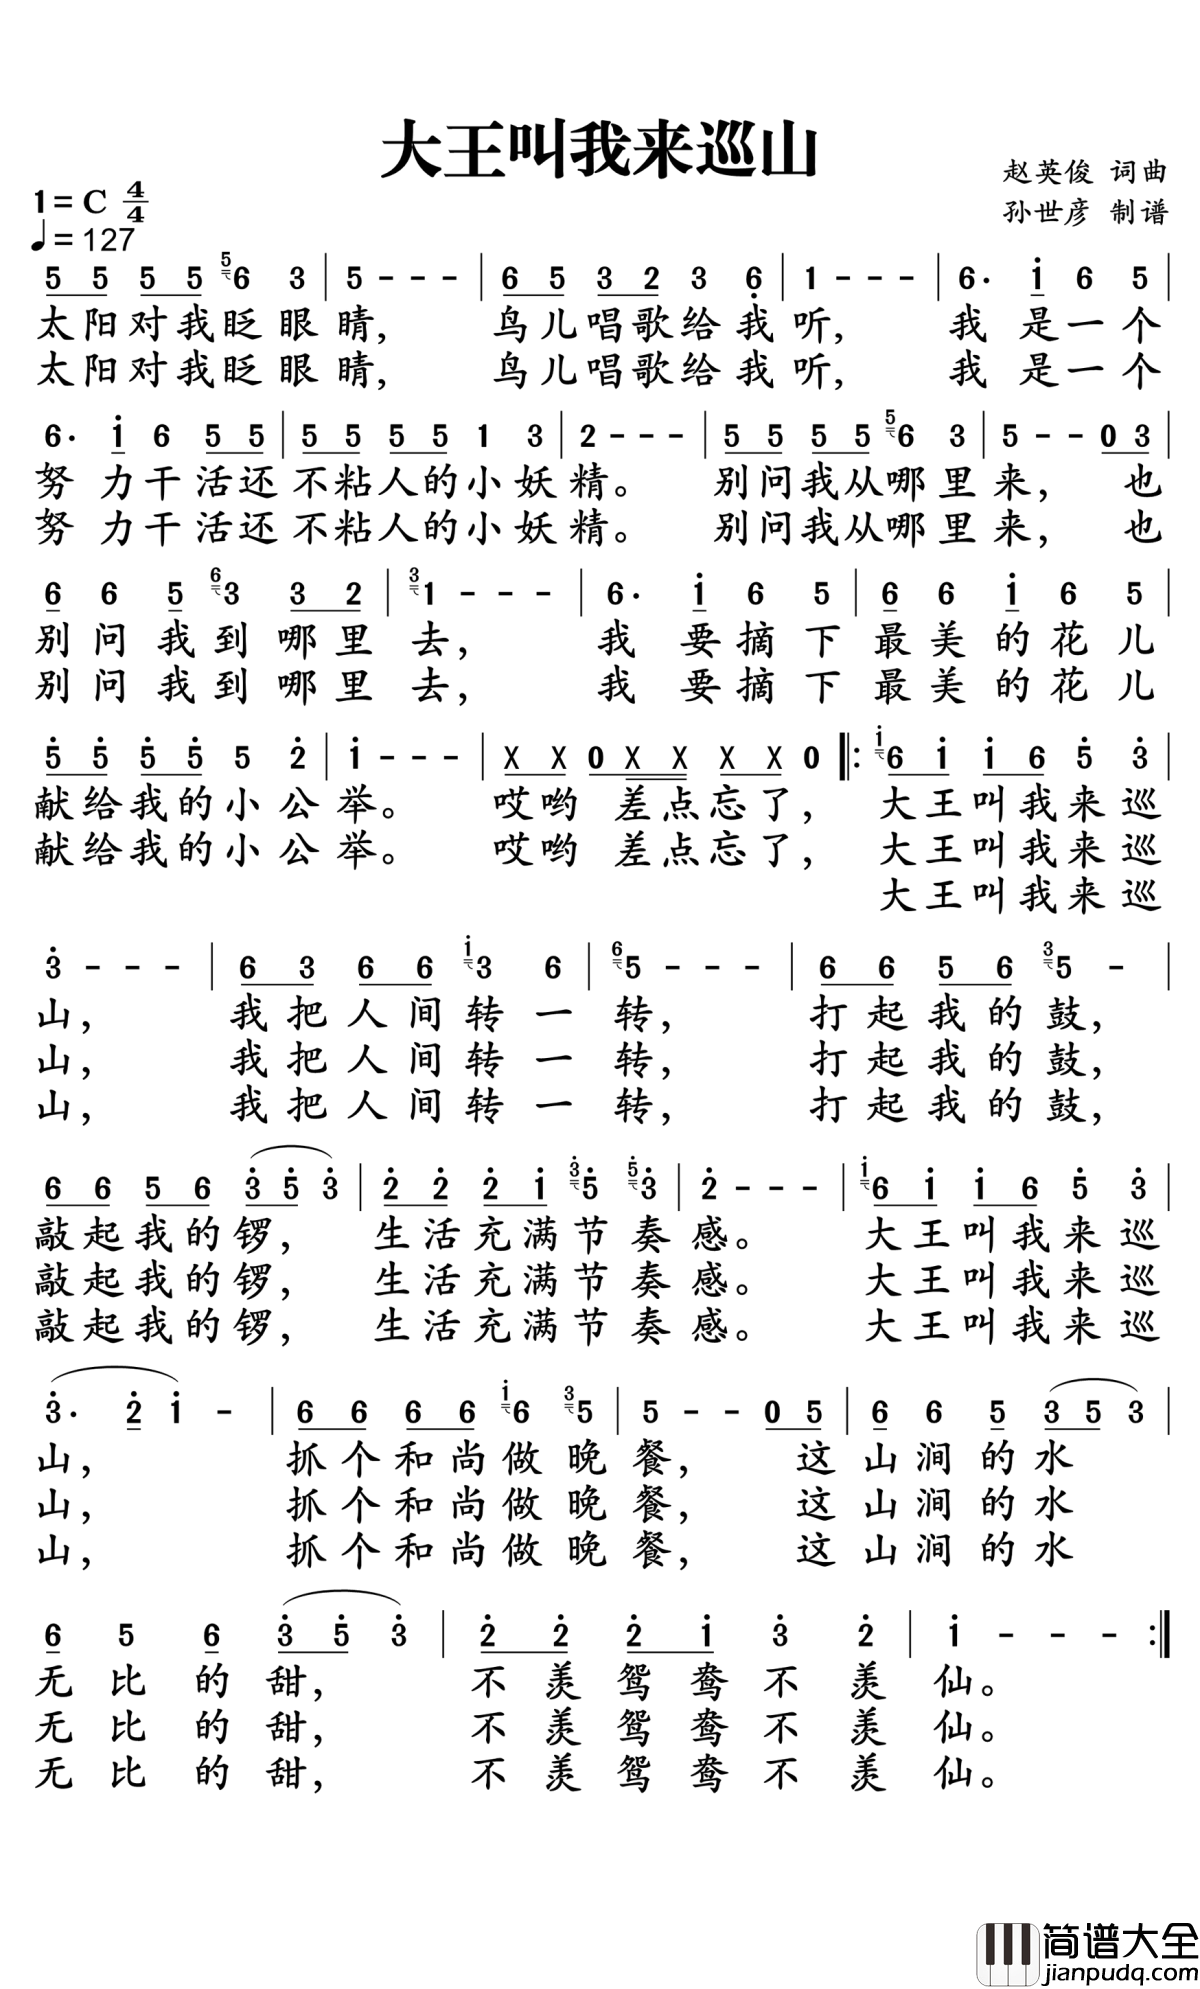 大王叫我来巡山
赵英俊 词曲
1=C 4/4
孙世彦 制谱
♩=127
5 5 5 5 5 6 3 | 5 - - - | 6 5 3 2 3 6̣ | 1 - - - | 6. i 6 5 |
太阳对我眨眼睛, 鸟儿唱歌给我听, 我是一个
太阳对我眨眼睛, 鸟儿唱歌给我听, 我是一个
6. i 6 5 5 | 5 5 5 5 1 3 | 2 - - - | 5 5 5 5 5 6 3 | 5 - - 0 3 |
努力干活还不粘人的小妖精。 别问我从哪里来, 也
努力干活还不粘人的小妖精。 别问我从哪里来, 也
6 6 5 6 3 3 2 | 3 1 - - - | 6. i 6 5 | 6 6 i 6 5 |
别问我到哪里去, 我要摘下最美的花儿
别问我到哪里去, 我要摘下最美的花儿
5̇ 5̇ 5̇ 5̇ 5 2̇ | i - - - | X X 0 X X X X 0 |: i 6 i i 6 5̇ 3̇ |
献给我的小公举。 哎哟 差点忘了, 大王叫我来巡
献给我的小公举。 哎哟 差点忘了, 大王叫我来巡
大王叫我来巡
3̇ - - - | 6 3 6 6 i 3 6 | 6 5 - - - | 6 6 5 6 3 5 - |
山, 我把人间转一转, 打起我的鼓,
山, 我把人间转一转, 打起我的鼓,
山, 我把人间转一转, 打起我的鼓,
6 6 5 6 3̇ 5̇ 3̇ | 2̇ 2̇ 2̇ i 3̇ 5̇ 5̇ 3̇ | 2̇ - - - | i 6 i i 6 5̇ 3̇ |
敲起我的锣, 生活充满节奏感。 大王叫我来巡
敲起我的锣, 生活充满节奏感。 大王叫我来巡
敲起我的锣, 生活充满节奏感。 大王叫我来巡
3̇. 2̇ i - | 6 6 6 6 i 6 3 5 | 5 - - 0 5 | 6 6 5 3 5 3 |
山, 抓个和尚做晚餐, 这山涧的水
山, 抓个和尚做晚餐, 这山涧的水
山, 抓个和尚做晚餐, 这山涧的水
6 5 6 3̇ 5̇ 3̇ | 2̇ 2̇ 2̇ i 3̇ 2̇ | i - - - :|
无比的甜, 不羡鸳鸯不羡仙。
无比的甜, 不羡鸳鸯不羡仙。
无比的甜, 不羡鸳鸯不羡仙。
简谱大全
jianpudq.com